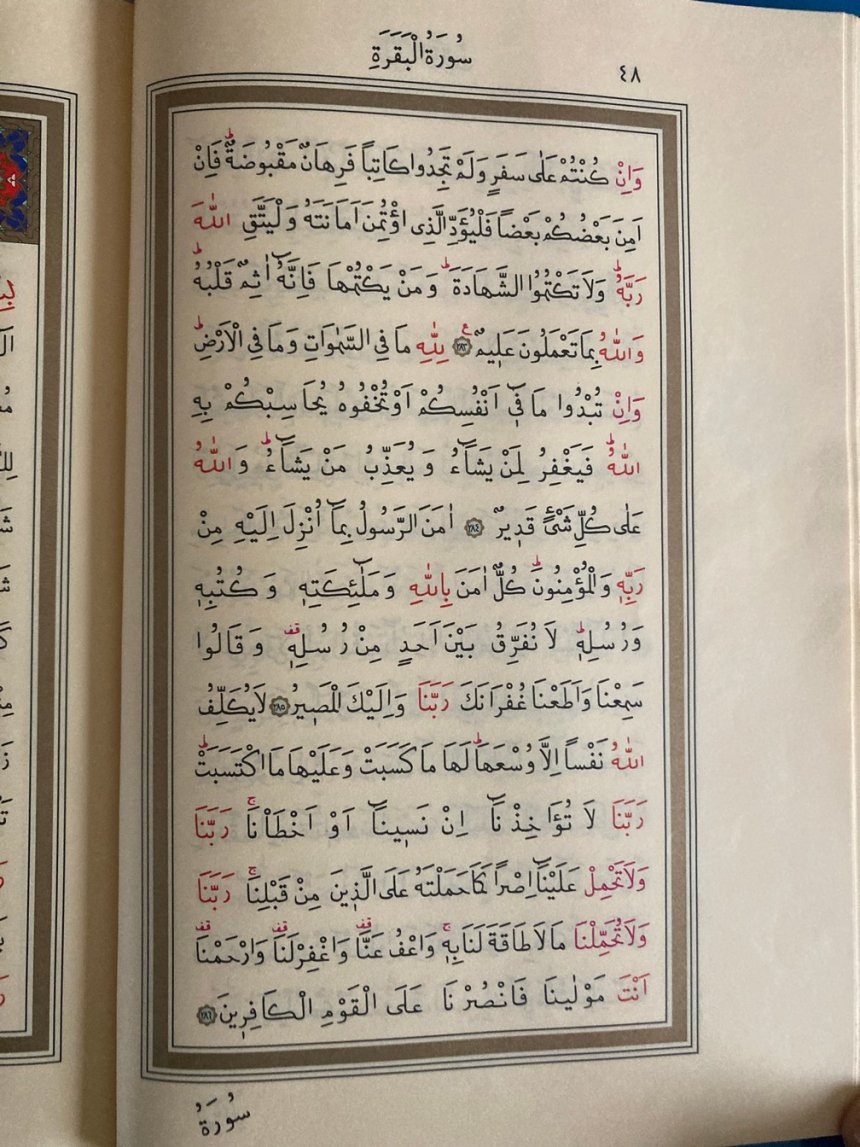 سُورَةُ الْبَقَرَةِ
٤٨
وَاِنْ كُنْتُمْ عَلٰى سَفَرٍ وَلَمْ تَجِدُوا كَاتِباً فَرِهَانٌ مَقْبُوضَةٌۜ فَاِنْ
اَمِنَ بَعْضُكُمْ بَعْضاً فَلْيُؤَدِّ الَّذِى اؤْتُمِنَ اَمَانَتَهُ وَلْيَتَّقِ اللّٰهَ
رَبَّهُۜ وَلَا تَكْتُمُوا الشَّهَادَةَۜ وَمَنْ يَكْتُمْهَا فَاِنَّهُٓ اٰثِمٌ قَلْبُهُۜ
وَاللّٰهُ بِمَا تَعْمَلُونَ عَلٖيمٌ ﴿٢٨٣﴾ لِلّٰهِ مَا فِى السَّمٰوَاتِ وَمَا فِى الْاَرْضِۜ
وَاِنْ تُبْدُوا مَا فٖٓى اَنْفُسِكُمْ اَوْ تُخْفُوهُ يُحَاسِبْكُمْ بِهِ
اللّٰهُۜ فَيَغْفِرُ لِمَنْ يَشَٓاءُ وَيُعَذِّبُ مَنْ يَشَٓاءُۜ وَاللّٰهُ
عَلٰى كُلِّ شَیْءٍ قَدٖيرٌ ﴿٢٨٤﴾ اٰمَنَ الرَّسُولُ بِمَٓا اُنْزِلَ اِلَيْهِ مِنْ
رَبِّهٖ وَالْمُؤْمِنُونَۜ كُلٌّ اٰمَنَ بِاللّٰهِ وَمَلٰٓئِكَتِهٖ وَكُتُبِهٖ
وَرُسُلِهٖۜ لَا نُفَرِّقُ بَيْنَ اَحَدٍ مِنْ رُسُلِهٖ ࣞ وَقَالُوا
سَمِعْنَا وَاَطَعْنَا غُفْرَانَكَ رَبَّنَا وَاِلَيْكَ الْمَصٖيرُ ﴿٢٨٥﴾ لَا يُكَلِّفُ
اللّٰهُ نَفْساً اِلَّا وُسْعَهَاۜ لَهَا مَا كَسَبَتْ وَعَلَيْهَا مَا اكْتَسَبَتْۜ
رَبَّنَا لَا تُؤَاخِذْنَٓا اِنْ نَسٖينَٓا اَوْ اَخْطَأْنَاۚ رَبَّنَا
وَلَا تَحْمِلْ عَلَيْنَٓا اِصْراً كَمَا حَمَلْتَهُ عَلَى الَّذٖينَ مِنْ قَبْلِنَاۚ رَبَّنَا
وَلَا تُحَمِّلْنَا مَا لَا طَاقَةَ لَنَا بِهٖۚ وَاعْفُ عَنَّا ࣞ وَاغْفِرْ لَنَا ࣞ وَارْحَمْنَا ࣞ
اَنْتَ مَوْلٰينَا فَانْصُرْنَا عَلَى الْقَوْمِ الْكَافِرٖينَ ﴿٢٨٦﴾
سُورَةُ